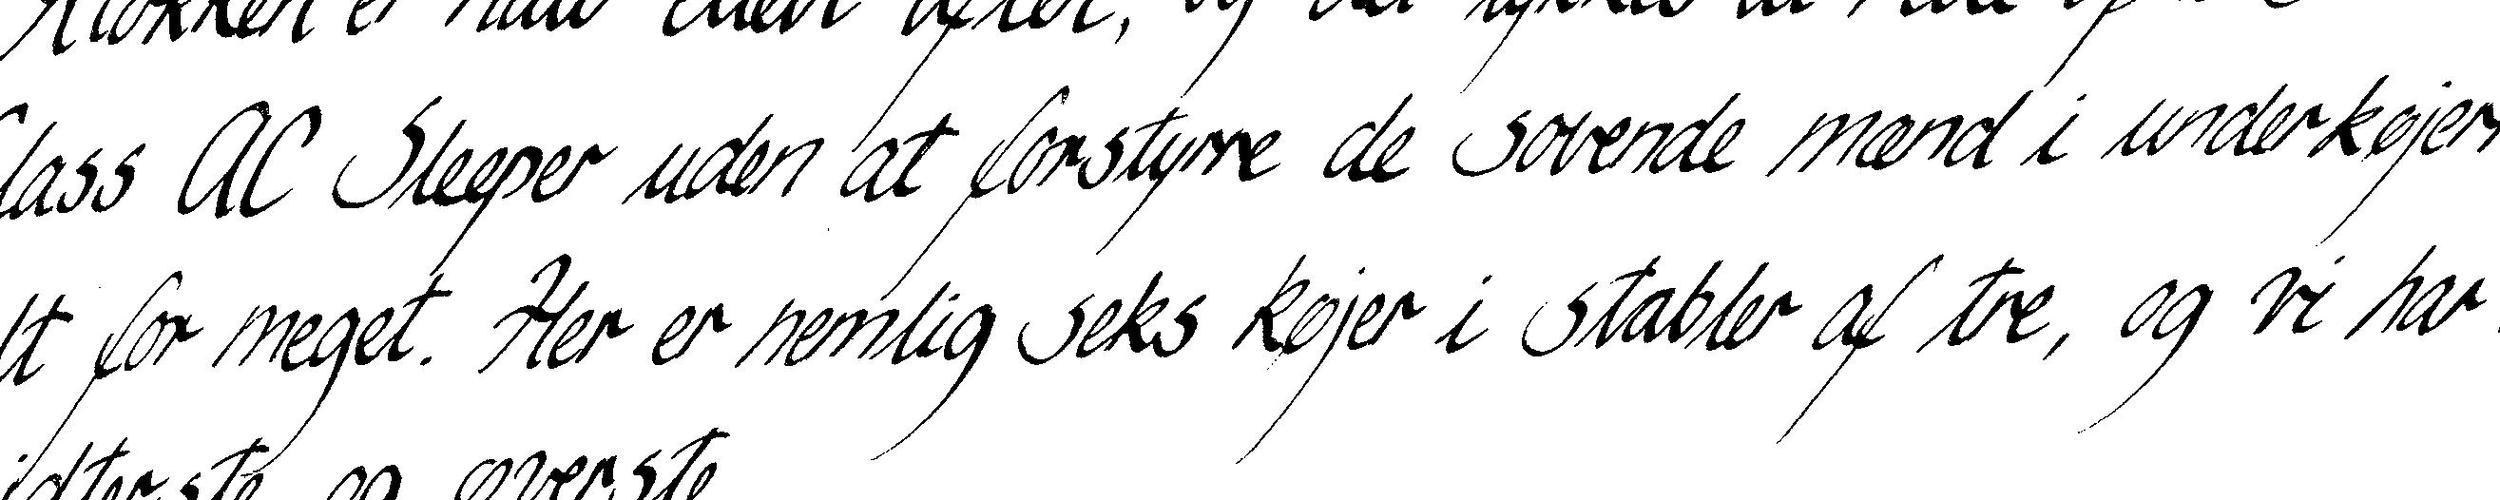 Klokken er halv
Class AC Sleeper uden at forstyrre de sovende mænd i underkøjern
lt for meget. Her er nemlig seks køjer i stabler af tre, og vi har
idterste og øverste